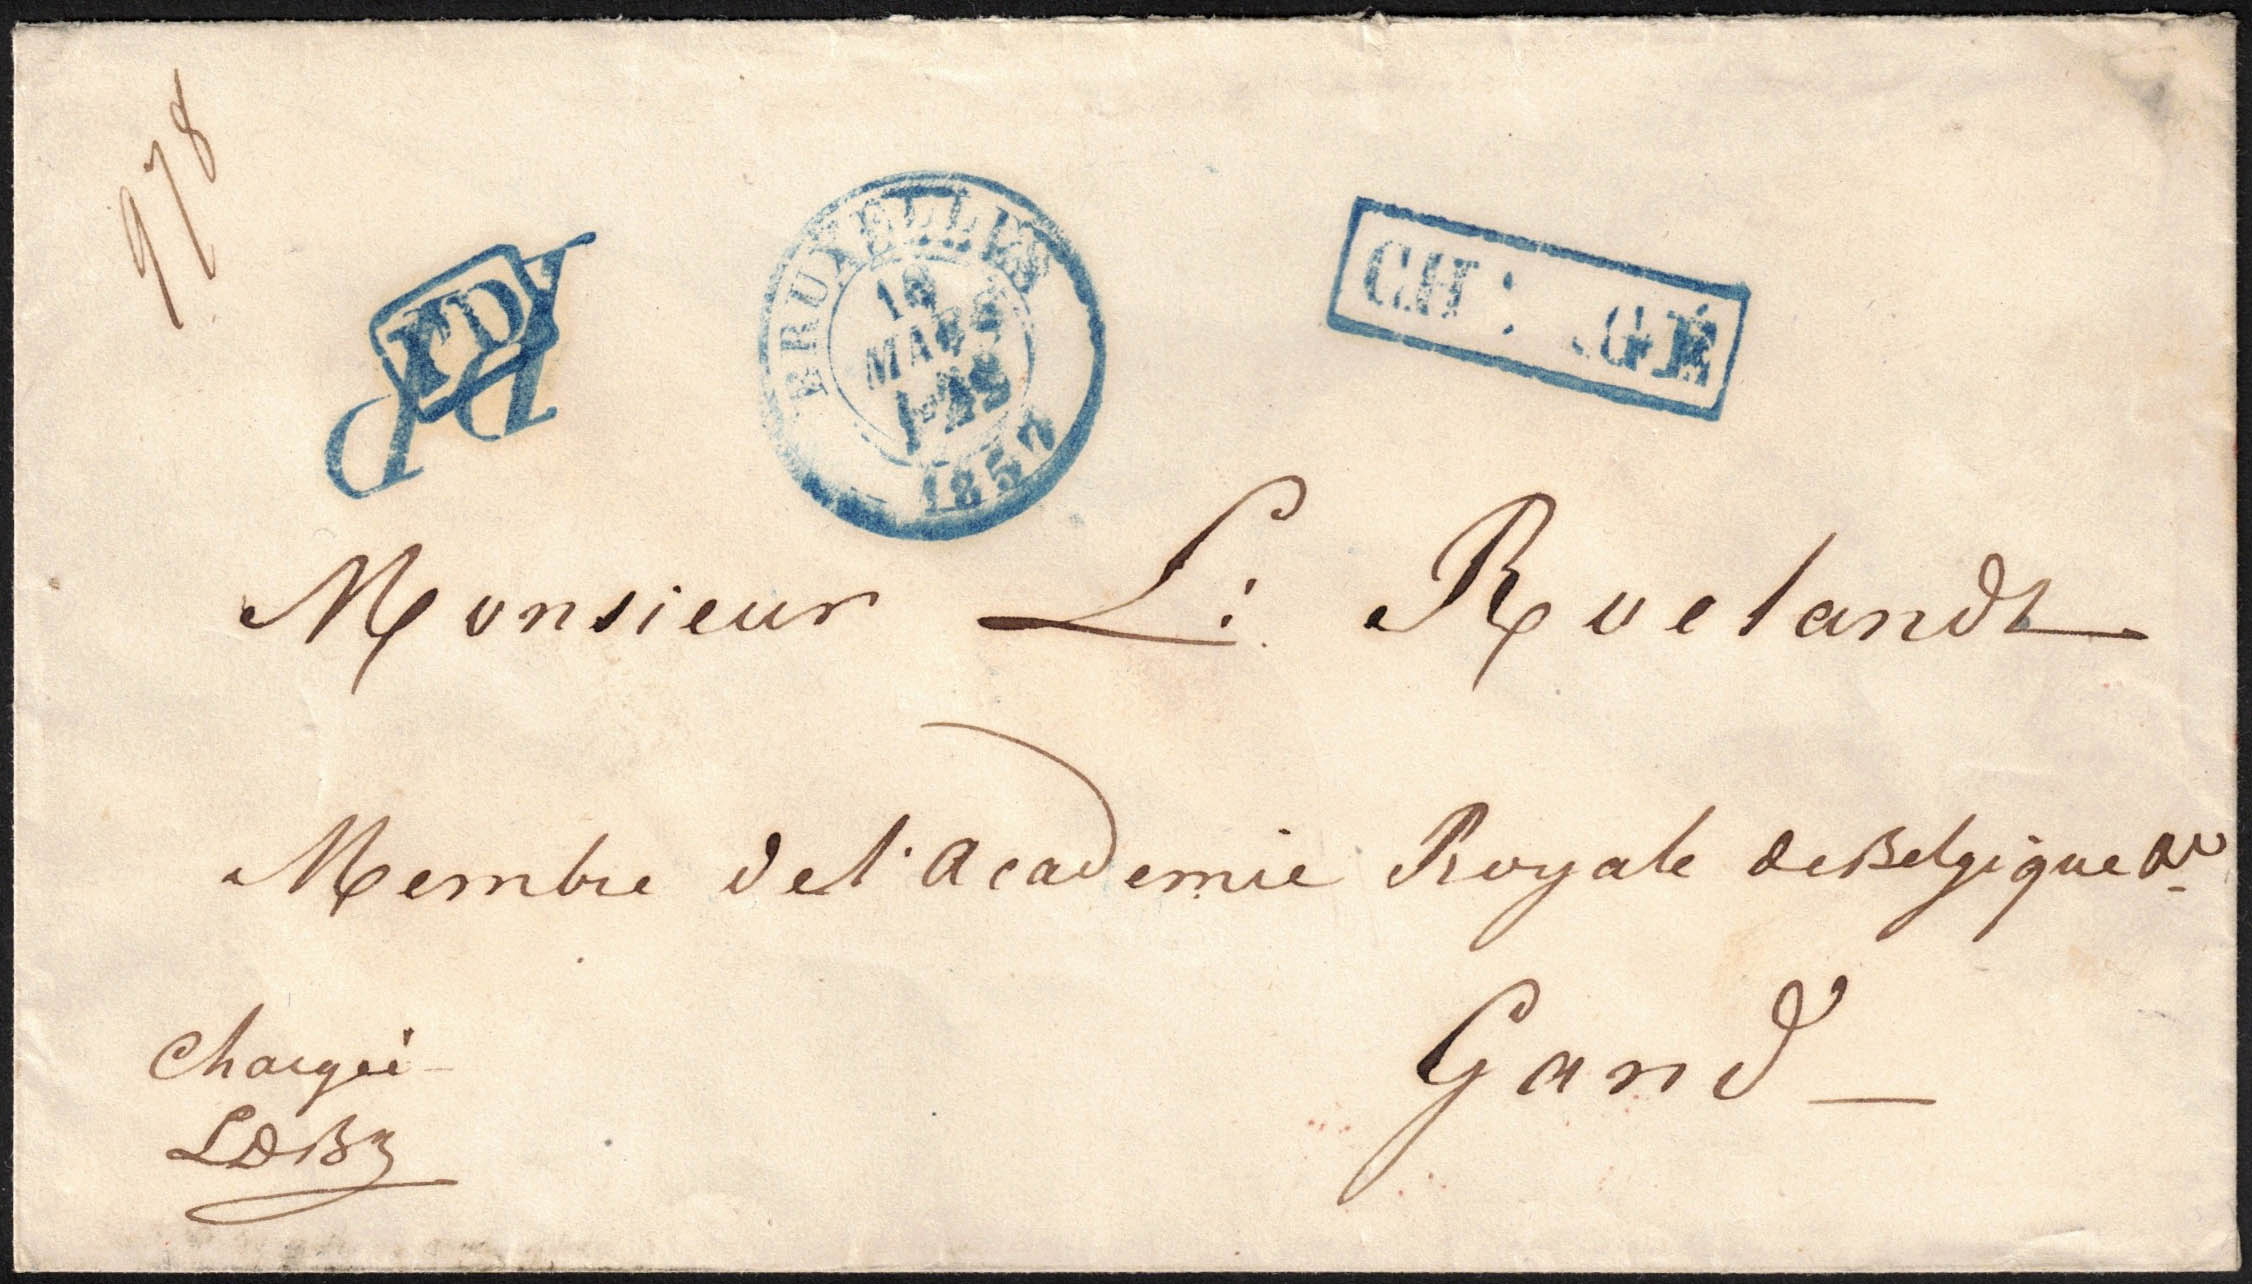 978
PD
PP
BRUXELLES
18
MARS
1857
CHARGÉ
Monsieur L: Roelandt
Membre de l'Academie Royale de Belgique &c
Gand
Chargée